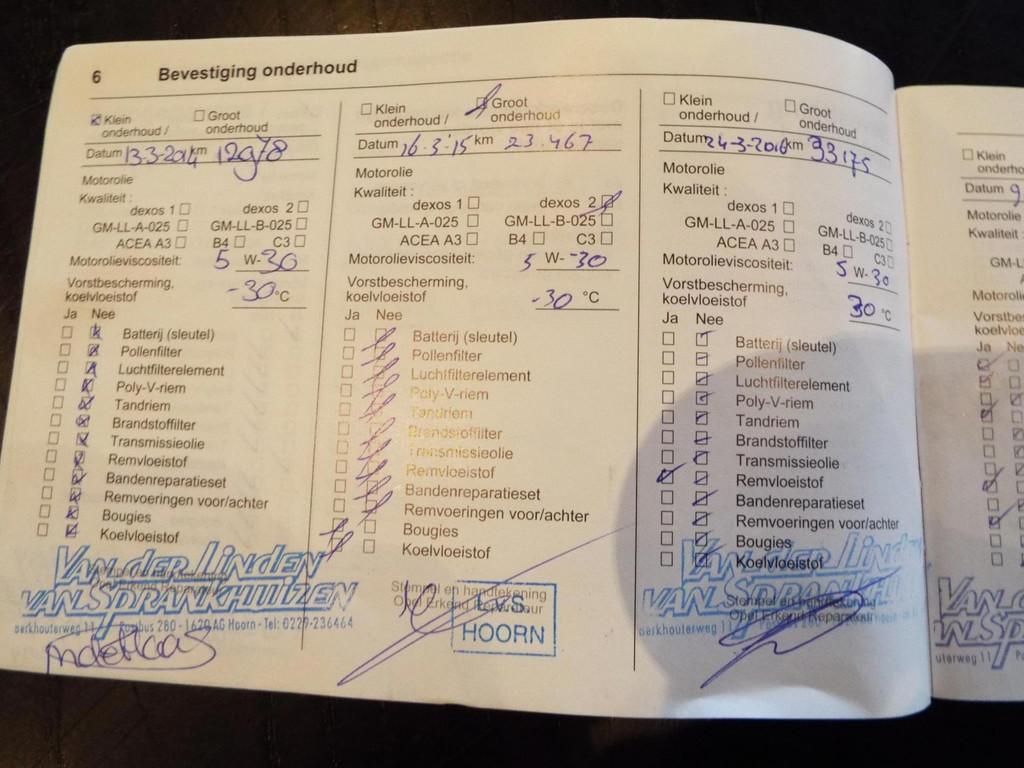 6 Bevestiging onderhoud
Klein onderhoud / Groot onderhoud
Datum 13-3-2014 km 12978
Motorolie
Kwaliteit :
dexos 1 dexos 2
GM-LL-A-025 GM-LL-B-025
ACEA A3 B4 C3
Motorolieviscositeit: 5 W-30
Vorstbescherming,
koelvloeistof -30 °C
Ja Nee
Batterij (sleutel)
Pollenfilter
Luchtfilterelement
Poly-V-riem
Tandriem
Brandstoffilter
Transmissieolie
Remvloeistof
Bandenreparatieset
Remvoeringen voor/achter
Bougies
Koelvloeistof
VAN DER LINDEN
VAN SPRANKHUIZEN
berkhouterweg 11 Postbus 280 - 1620 AG Hoorn - Tel: 0229-236464
Klein onderhoud / Groot onderhoud
Datum 16-3-'15 km 23.467
Motorolie
Kwaliteit :
dexos 1 dexos 2
GM-LL-A-025 GM-LL-B-025
ACEA A3 B4 C3
Motorolieviscositeit: 5 W-30
Vorstbescherming,
koelvloeistof -30 °C
Ja Nee
Batterij (sleutel)
Pollenfilter
Luchtfilterelement
Poly-V-riem
Tandriem
Brandstoffilter
Transmissieolie
Remvloeistof
Bandenreparatieset
Remvoeringen voor/achter
Bougies
Koelvloeistof
Stempel en handtekening
Opel Erkend Reparateur
HOORN
Klein onderhoud / Groot onderhoud
Datum 24-3-2016 km 33175
Motorolie
Kwaliteit :
dexos 1 dexos 2
GM-LL-A-025 GM-LL-B-025
ACEA A3 B4 C3
Motorolieviscositeit: 5 W-30
Vorstbescherming,
koelvloeistof 30 °C
Ja Nee
Batterij (sleutel)
Pollenfilter
Luchtfilterelement
Poly-V-riem
Tandriem
Brandstoffilter
Transmissieolie
Remvloeistof
Bandenreparatieset
Remvoeringen voor/achter
Bougies
Koelvloeistof
Stempel en handtekening
Opel Erkend Reparateur
VAN DER LINDEN
VAN SPRANKHUIZEN
berkhouterweg 11
Klein
Datum 9
Motorolie
Kwaliteit :
Ja